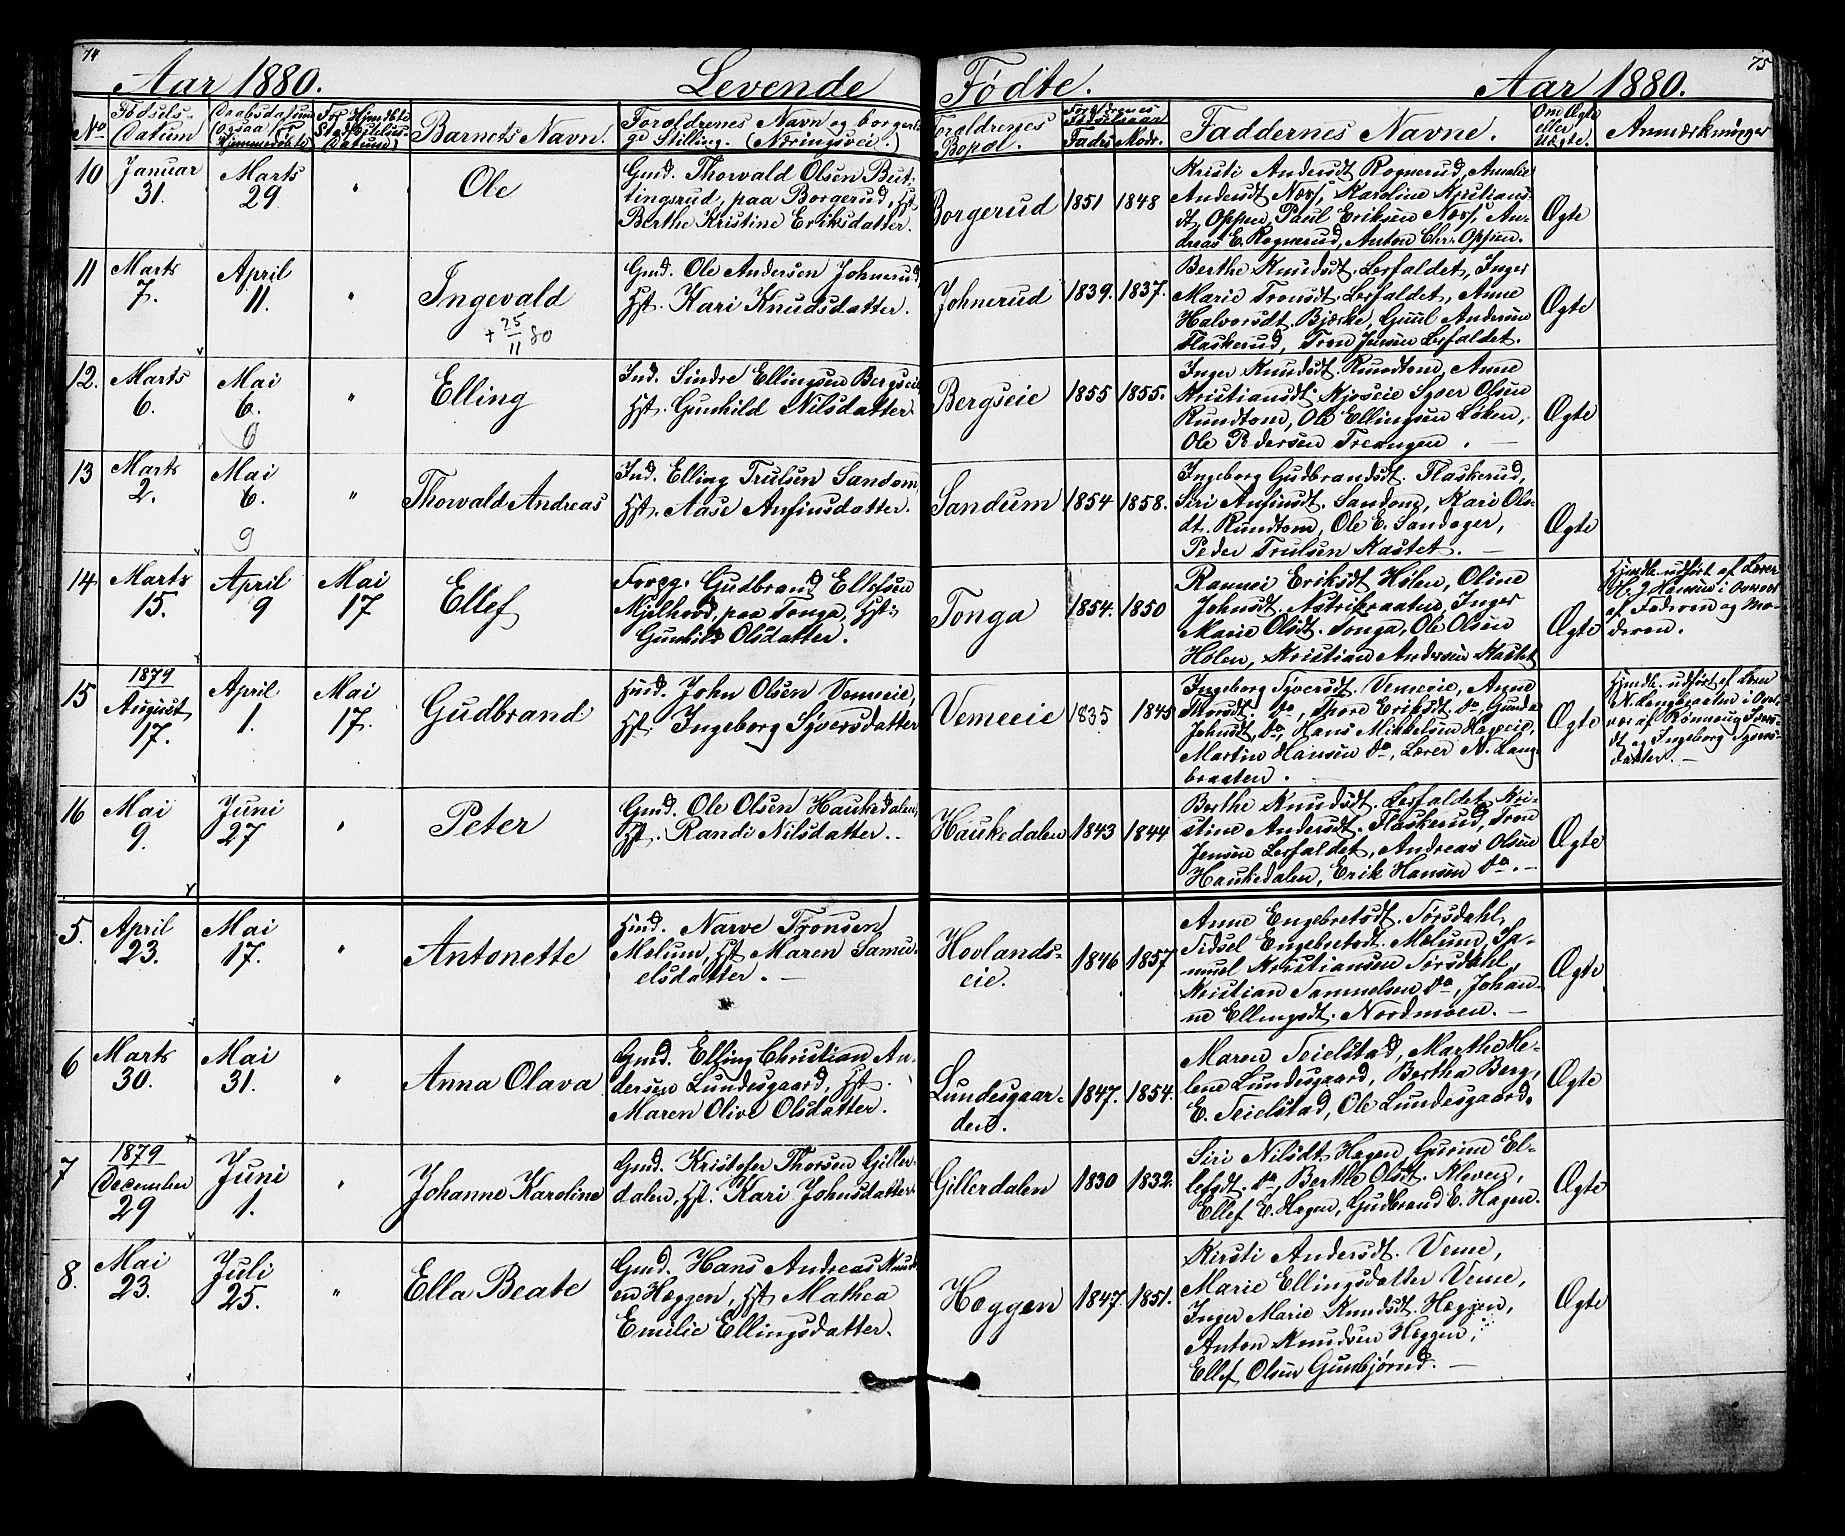 74
Aar 1880. Levende Fødte. Aar 1880.
75
No
Fødsels-
Datum
Daabsdatum
(ogsaa
Hjemmedøbte
For Hjmdøbte
Stadfæstelses
Datum
Barnets Navn.
Forældrenes Navn og borgerli-
ge Stilling. (Næringsvei.)
Forældrenes
Bopæl.
Forældrenes
Fødselsaar
Fadrs Modr.
Faddernes Navne.
Om Ægte
eller
Uægte.
Anmærkninger
10
Januar
31.
Marts
29.
"
Ole
Gmd. Thorvald Olsen But-
tingsrud, paa Borgerud, Hst
Berthe Kristine Eriksdatter.
Borgerud
1851
1848
Kristi Andersdt Rognerud, Amalie
Andersdt Næss, Karoline Kristians-
dt. Oppen, Paul Eriksen Næss, An-
dreas E. Rognerud, Anton Chr. Oppen.
Ægte
11
Marts
7.
April
11.
"
Ingevald
+ 25/11 80
Gmd. Ole Andersen Johnerud,
Hst. Kari Knudsdatter.
Johnerud
1839.
1837.
Berthe Knudsdt. Lerfaldet, Inger
Marie Tronsdt. Lerfaldet, Anne
Halvorsdt. Bjerke, Guul Andersen
Flaskerud, Tron Jensen Lerfaldet.
Ægte
12.
Marts
6.
Mai
6.
6
"
Elling
Ind. Sindre Ellingsen Bergseie
Hst. Gunhild Nilsdatter.
Bergseie
1855
1855.
Inger Knudsdt. Rundtom, Anne
Kristiansdt. Syver Olsen
Rundtom, Ole Ellingsen Løken,
Ole Pedersen Treangen. —
Ægte
13
Marts
2.
Mai
6.
9
"
Thorvald Andreas
Ind. Elling Trulsen Sandom,
Hst. Aase Anfinsdatter.
Sandum
1854
1858.
Ingeborg Gudbrandsdt. Flaskerud,
Siri Anfinsdt. Sandong, Kari Ols-
dt. Rundtom, Ole E. Sandager,
Peder Trulsen Kastet. —
Ægte
14.
Marts
15.
April
9
Mai
17
Ellef
Forpg. Gudbrand Ellefsen
Mjelhvod, paa Tonga, Hst.
Gunhild Olsdatter.
Tonga
1854.
1850
Rannei Eriksdt Hølen, Oline
Johnsdt. Inger
Marie Olsdt. Tonga, Ole Olsen
Hølen, Kristian Andersen Kastet
Ægte
Hjmdb. udført af Lærer
H. J. Hansen i Overvær
af Faderen og Mo-
deren.
15
1879
August
17.
April
1.
Mai
17.
Gudbrand
Husd. John Olsen Vemeeie,
Hst. Ingeborg Syversdatter
Vemeeie
1835
1845
Ingeborg Syversdt. Vemeeie, Anne
Thorsdt. do, Thore Eriksdt. do, Gunda
Johnsdt. do, Hans Mikkelsen
Martin Hansen do, Lærer N. Lang-
braaten.
Ægte
Hjmdb. udført af Lærer
N. Langbraaten i Over-
vær af Rønnaug Sørens-
dt og Ingeborg Syvers-
datter. —
16
Mai
9.
Juni
27
"
Peter
Gmd. Ole Olsen Haukedalen,
Hst. Randi Nilsdatter. —
Haukedalen
1843
1844
Berthe Knudsdt. Lerfaldet, Kri-
stine Andersdt. Flaskerud, Tron
Jensen Lerfaldet, Andreas Olsen
Haukedalen, Erik Hansen do. —
Ægte
5.
April
23.
Mai
17.
"
Antonette
Husd. Narve Tronsen
Molum, Hst Maren Samu-
elsdatter. —
Hovlands-
eie.
1846
1857
Anne Engebretsdt. Torsdahl,
Sidsel Engebretsdt. Molum, Sa-
muel Kristiansen Torsdahl,
Kristian Samuelsen do, Johan-
ne Ellingsdt. Nordmoen. —
Ægte
6
Marts
30.
Mai
31.
"
Anna Olava
Gmd. Elling Christian An-
dersen Lundesgaard, Hst.
Maren Olive Olsdatter.
Lundesgaar-
den.
1847.
1854.
Maren Teielstad, Marthe He-
lene Lundesgaard, Bertha Berg,
E. Teielstad, Ole Lundesgaard.
Ægte
7
1879
December
29
Juni
1.
"
Johanne Karoline
Gmd. Kristofer Thorsen Giller-
dalen, Hst. Kari Johnsdatter.
Gillerdalen
1830
1832.
Siri Nilsdt Hagen, Gurine El-
lefsdt. do, Berthe Olsdt. Kleven,
Ellef E. Hagen, Gudbrand E. Hagen.
Ægte
8.
Mai
23.
Juli
25.
"
Ella Beate
Gmd. Hans Andreas Knuds-
en Hæggen, Hst Mathea
Emilie Ellingsdatter.
Hæggen
1847
1851.
Kirsti Andersdt. Veme,
Marie Ellingsdatter Veme,
Inger Marie Knudsdt. Hæggen,
Anton Knudsen Hæggen,
Ellef Olsen Gunbjørrud. —
Ægte